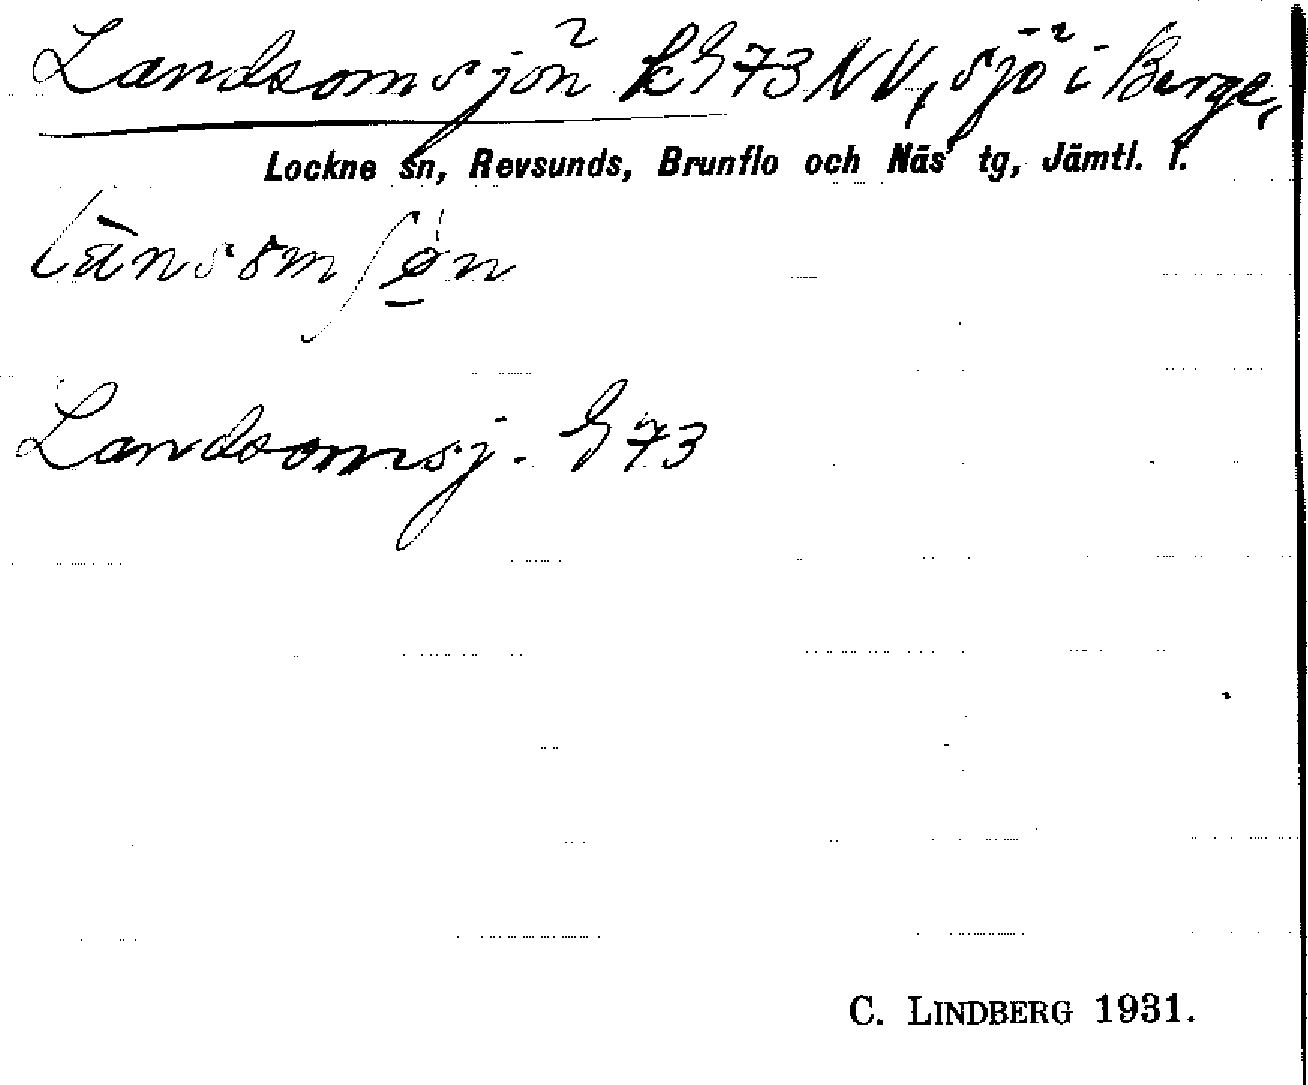 Landsomsjön k G 73 NV, sjö i Berge,
Lockne sn, Revsunds, Brunflo och Näs tg, Jämtl. l.
Landsomsj. G 73
C. LINDBERG 1931.